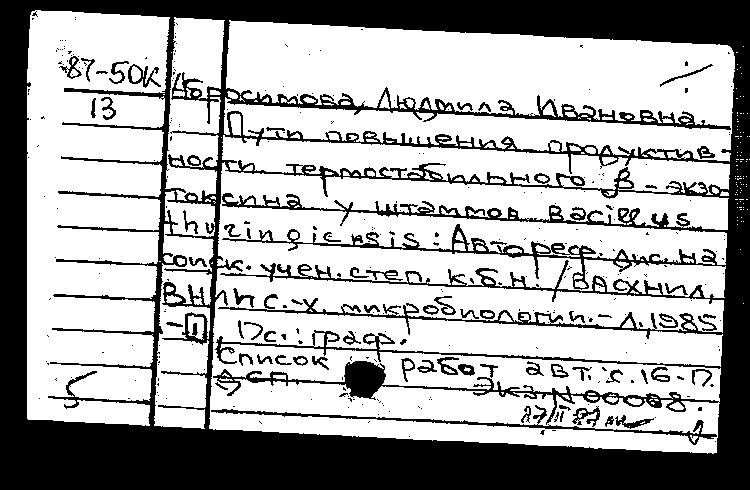 87-50К Абросимова, Людмила Ивановна.
13
Пути повышения продуктив-
ности термостабильного β-экзо-
токсина у штаммов Bacillus
thuringiensis: Автореф. дис. на
соиск. учен. степ. к.б.н. / ВАСХНИЛ,
ВНИИ с.-х. микробиологии. - Л., 1985
17 с.: граф.
Список работ авт.: с. 16-17.
сп. Экз. N 00008.
5